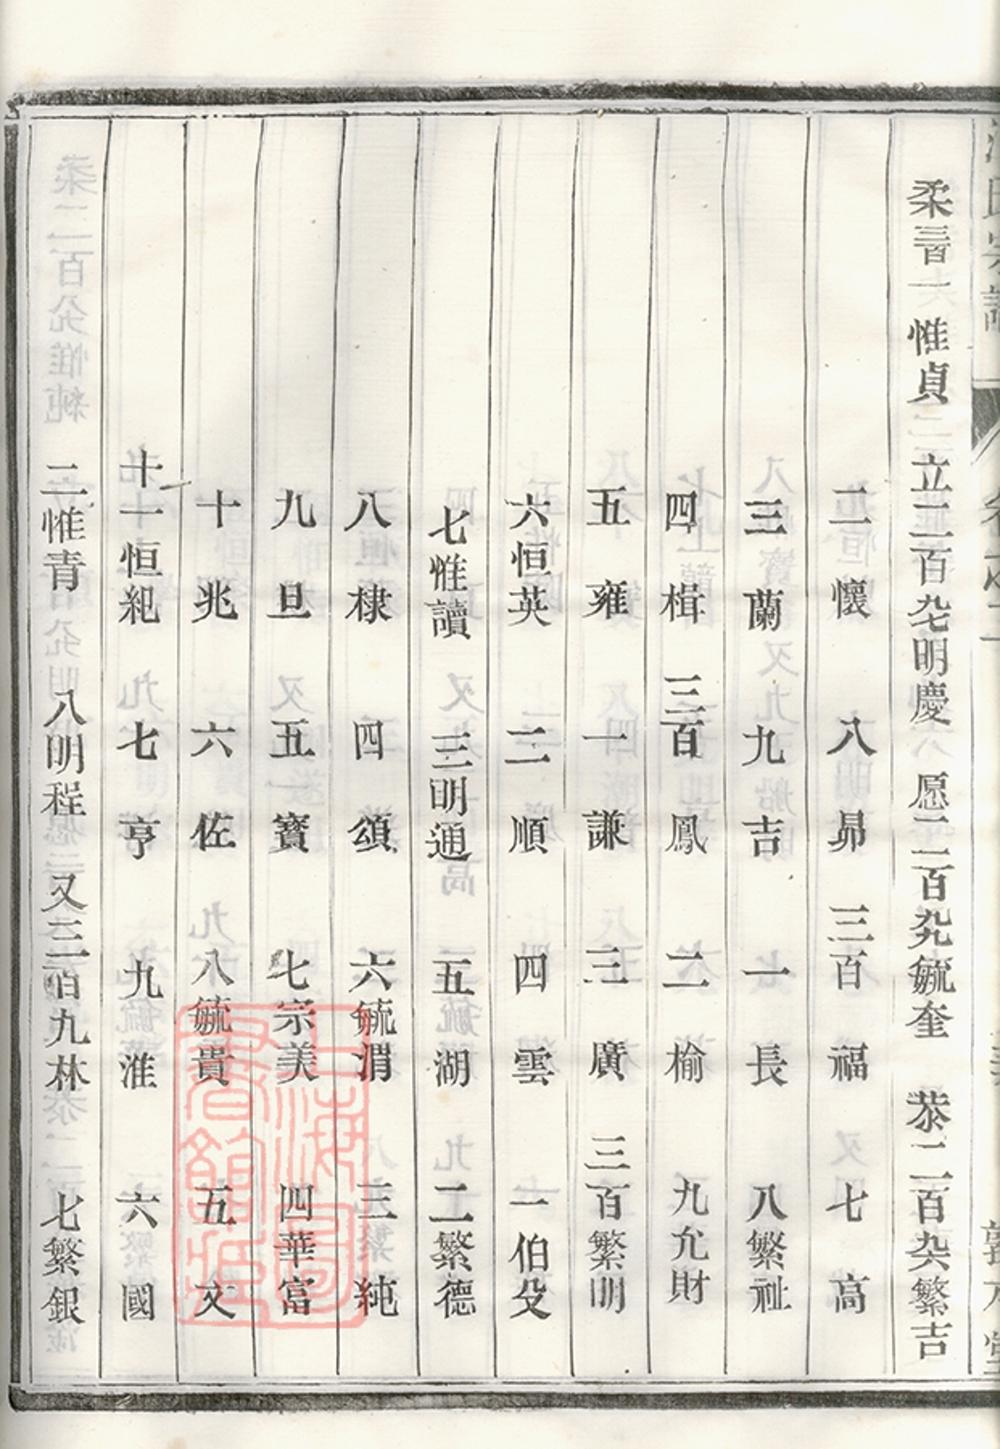 柔三百一惟貞 立二百杂明慶 愿二百九毓奎 恭二百六繁吉
二懷 八昴 三百福 七高
三蘭 九吉 一長 八繁祉
四楫 三百鳳 二榆 九允財
五雍 一謙 三廣 三百繁明
六恒英 二順 四雲 一伯殳
七惟讀 三明通 五湖 二繁德
八棣 四頌 六毓渭 三純
九旦 五寶 七宗美 四華富
十兆 六佐 八毓貴 五文
十一恒紀 七亨 九淮 六國
二惟青 八明程 又三百九林 七繁銀
上海圖書館藏